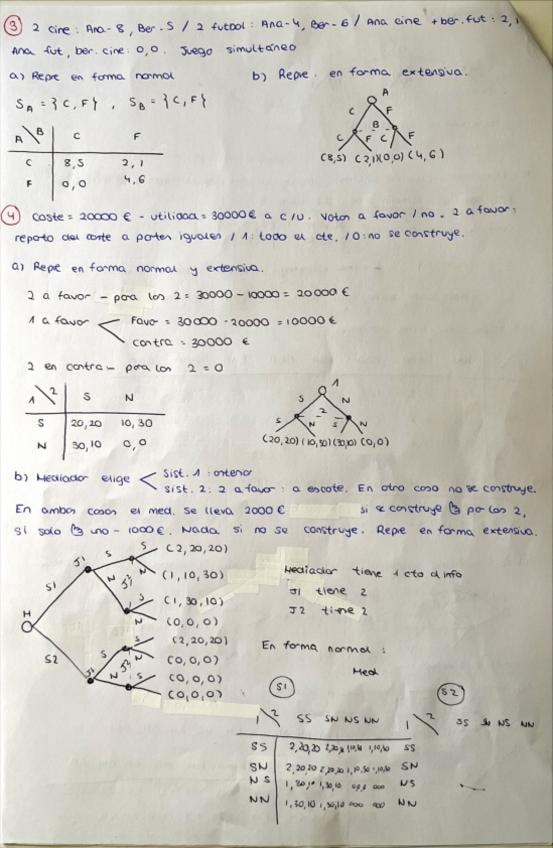 ③ 2 cine: Ana-8, Ber-5 / 2 futbol: Ana-4, Ber-6 / Ana cine + ber. fut: 2,1
Ana fut, ber. cine: 0,0. Juego simultáneo
a) Repre en forma normal
S_A = {C, F}, S_B = {C, F}
A \ B C F
C 8,5 2,1
F 0,0 4,6
b) Repre. en forma extensiva.
A
C F
B
C F C F
(8,5) (2,1)(0,0) (4,6)
④ Coste = 20000 € - utilidad = 30000 € a c/u. Votan a favor / no. 2 a favor:
reparto del coste a partes iguales / 1: todo el cte. / 0: no se construye.
a) Repre en forma normal y extensiva.
2 a favor - para los 2 = 30000 - 10000 = 20000 €
1 a favor < Favor = 30000 - 20000 = 10000 €
contra = 30000 €
2 en contra - para los 2 = 0
1 \ 2 S N
S 20,20 10,30
N 30,10 0,0
1
S N
2
S N S N
(20,20) (10,30) (30,10) (0,0)
b) Mediador elige < Sist. 1: anterior
Sist. 2: 2 a favor: a escote. En otro caso no se construye.
En ambos casos el med. se lleva 2000 € si se construye por los 2,
si solo uno - 1000 €. Nada si no se construye. Repre en forma extensiva.
M
S1
S2
J1 S S (2,20,20)
N (1,10,30)
N J2 S (1,30,10)
N (0,0,0)
J1 S S (2,20,20)
J2 N (0,0,0)
N S (0,0,0)
N (0,0,0)
Mediador tiene 1 cto d info
J1 tiene 2
J2 tiene 2
En forma normal:
Med
S1 S2
1 \ 2 SS SN NS NN 1 \ 2 SS SN NS NN
SS 2,20,20 2,20,20 1,10,30 1,10,30 SS
SN 2,20,20 2,20,20 1,10,30 1,10,30 SN
NS 1,30,10 1,30,10 000 000 NS
NN 1,30,10 1,30,10 000 000 NN